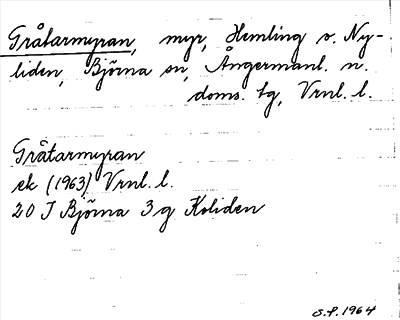 Gråtarmyran, myr, Hemling o. Ny-
liden, Björna sn, Ångermanl. n.
doms. tg, Vrnl. l.
Gråtarmyran
ek (1963) Vrnl. l.
20 I Björna 3 g Koliden
S.P. 1964